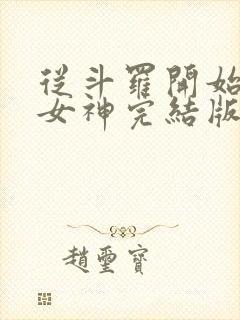 從斗羅開始
女神完結版
趙璽寶